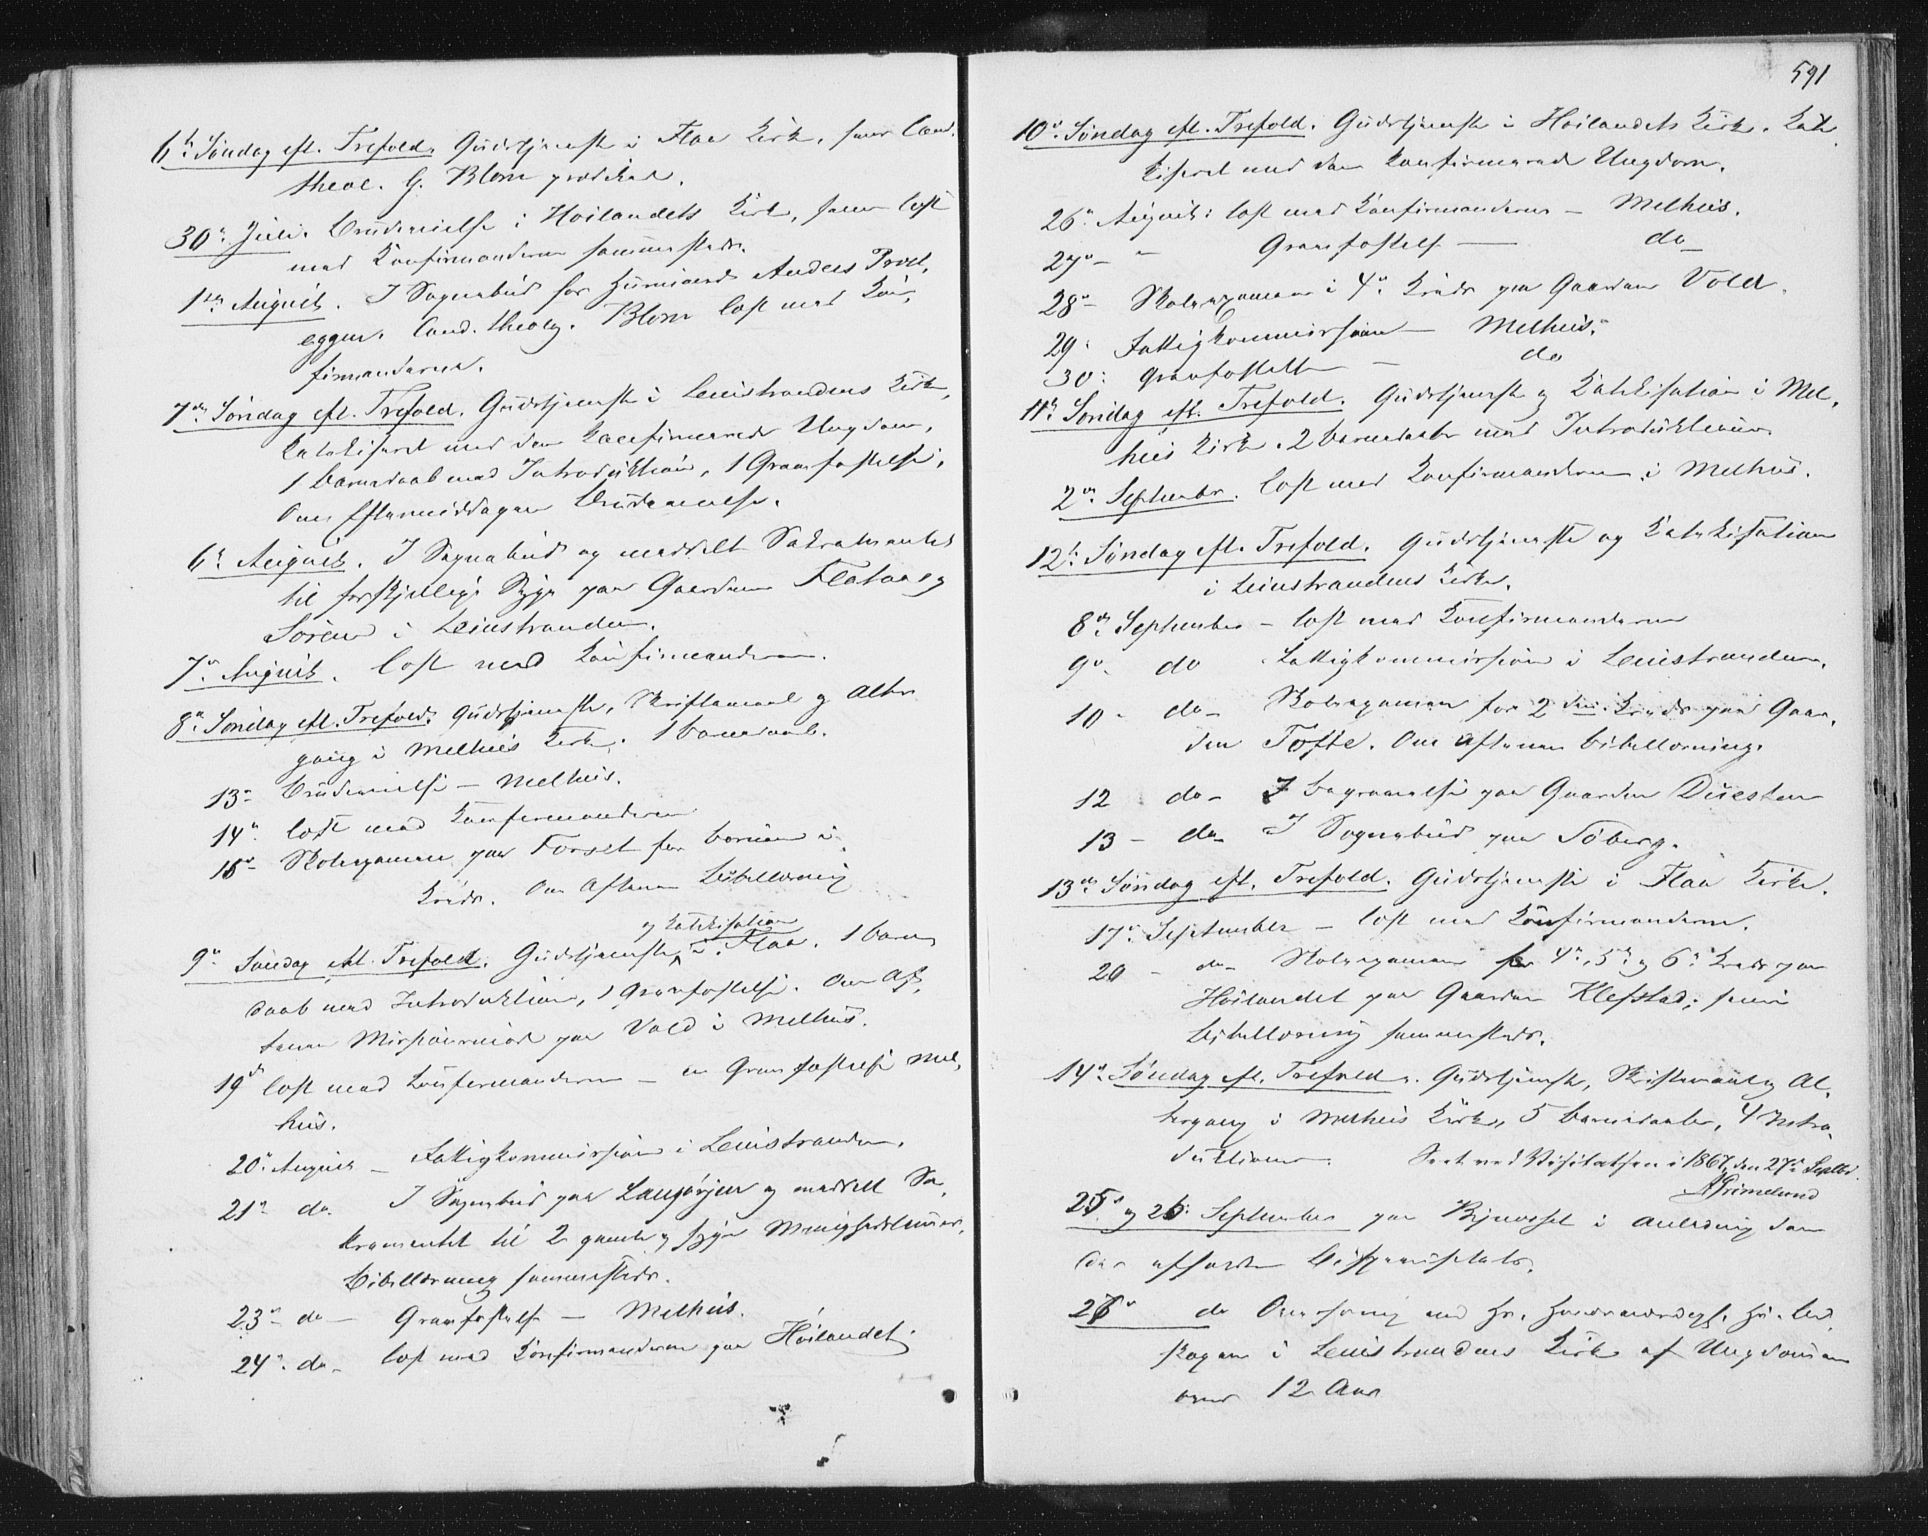 6te Søndag eft. Trefold. Gudstjeneste i Flaa Kirke, hvor Cand.
theol. G. Blom prædikede.
30te Juli. Brudevielse i Høilandets Kirke, samt læst
med Konfirmanderne sammesteds.
1ste August. I Sognebud for Huusmand Anders Prest,
eggen. Cand. theolog. Blom læst med Kon,
firmanderne.
7de Søndag eft. Trefold. Gudstjeneste i Leinstrandens Kirke,
katekiseret med den konfirmerede Ungdom,
1 Barnedaab med Introduktion, 1 Gravfæstelse.
Om Eftermiddagen Brudevielse.
6te August. I Sognebud og meddelt Sakramentet
til forskjellige Syge paa Gaardene Flotaas og
Søreim i Leinstranden.
7de August. læst med Konfirmanderne.
8de Søndag eft. Trefold. Gudstjeneste, Skriftemaal og Alter
gang i Melhus Kirke. 1 Barnedaab.
13de Brudevielse — Melhus.
14de læst med Konfirmanderne
15de Skolexamen paa Forset for Børnene i
Kreds. Om Aftenen Bibellæsning
og Katekisation
9de Søndag eft. Trefold. Gudstjeneste i Flaa. 1 Barne
daab med Introduktion, 1 Gravfæstelse. Om Af,
tenen Missionsmøde paa Vold i Melhus.
19de læst med Konfirmanderne — en Gravfæstelse Mel,
hus.
20de August — Fattigkommission i Leinstranden.
21de do. I Sognebud paa Langørgen og meddelt Sa,
kramentet til 2 gamle og syge Menighedslemmer.
Bibellæsning sammesteds.
23de do — Gravfæstelse — Melhus.
24de do — læst med Konfirmanderne paa Høilandet.
591
10de Søndag eft. Trefold. Gudstjeneste i Høilandets Kirke. Kate
kiseret med den konfirmerede Ungdom.
26de August: læst med Konfirmanderne — Melhus.
27de — " Gravfæstelse — do
28de — Skolexamen i 4de Kreds paa Gaarden Vold.
29: Fattigkommission — Melhus.
30: Gravfæstelse — do
11te Søndag eft. Trefold. Gudstjeneste og Katekisation i Mel,
hus Kirke. 2 Barnedaab med Introduktioner.
2den September. læst med Konfirmanderne i Melhus.
12te Søndag eft. Trefold. Gudstjeneste og Katekisation
i Leinstrandens Kirke.
8de September — læst med Konfirmanderne
9de do Fattigkommission i Leinstranden.
10 - do — Skolexamen for 2den Kreds paa Gaar,
den Tofte. Om Aftenen Bibellæsning.
12 do — I Begravelse paa Gaarden Duesten
13 — do — I Sognebud paa Søberg.
13de Søndag eft. Trefold. Gudstjeneste i Flaa Kirke.
17de September — læst med Konfirmanderne.
20 — do — Skolexamen for 4de, 5te og 6te Kreds paa
Høilandet paa Gaarden Klefstad; samt
Bibellæsning sammesteds.
14de Søndag eft. Trefold. Gudstjeneste, Skriftemaal og Al,
tergang i Melhus Kirke, 5 Barnedaabe, 4 Intro,
duktioner. Seet ved Visitatsen i 1867, den 27de Septbr.
AGrimelund
25de og 26de September paa Bynesset i Anledning den
der afholdte Bispevisitats.
27de do Overhøring ved Hr. Bi
skopen i Leinstrandens Kirke af Ungdommen
over 12 Aar